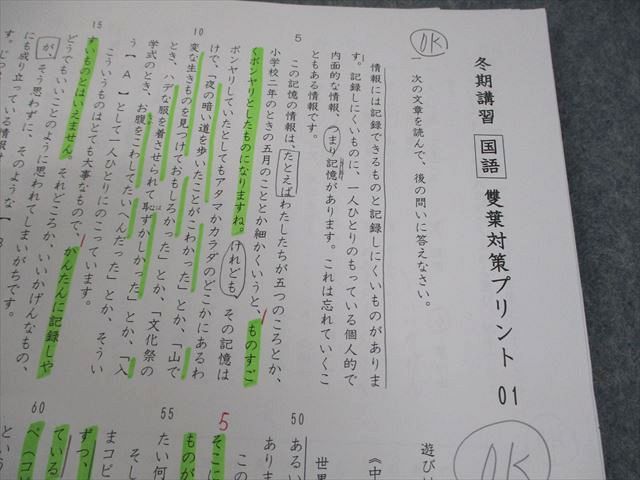 冬期講習 国語 雙葉対策プリント 01
OK
一 次の文章を読んで、後の問いに答えなさい。
情報には記録できるものと記録しにくいものがありま
す。記録しにくいものに、一人ひとりのもっている個人的で
内面的な情報、つまり記憶があります。これは忘れていくこ
ともある情報です。
5
この記憶の情報は、たとえばわたしたちが五つのころとか、
小学校二年のときの五月のこととか細かくいうと、ものすご
くボンヤリとしたものになりますね。けれども、その記憶は
ボンヤリしていたとしてもアタマかカラダのどこかにあるわ
けで、「夜の暗い道を歩いたことがこわかった」とか、「山で
10
変な生きものを見つけておもしろかった」とか、「文化祭の
とき、ハデな服を着させられて恥ずかしかった」とか、「入
学式のとき、お腹をこわしてたいへんだった」とか、そうい
う【A】として一人ひとりにのこっています。
こういうものはとても大事なもので、かんたんに記録しや
15
すいものとはいえません。それどころか、いいかげんなもの、
どうでもいいことのように思われてしまいがちです。
が、そう思わずに、そのような【B
にも成り立っている情報
50
あるい
世界
《中
遊び
ありま
この
5
そこに
ものが
たい何
55
そし
まコピ
ずつ、
ている
60
ペ（コピ
という
OK